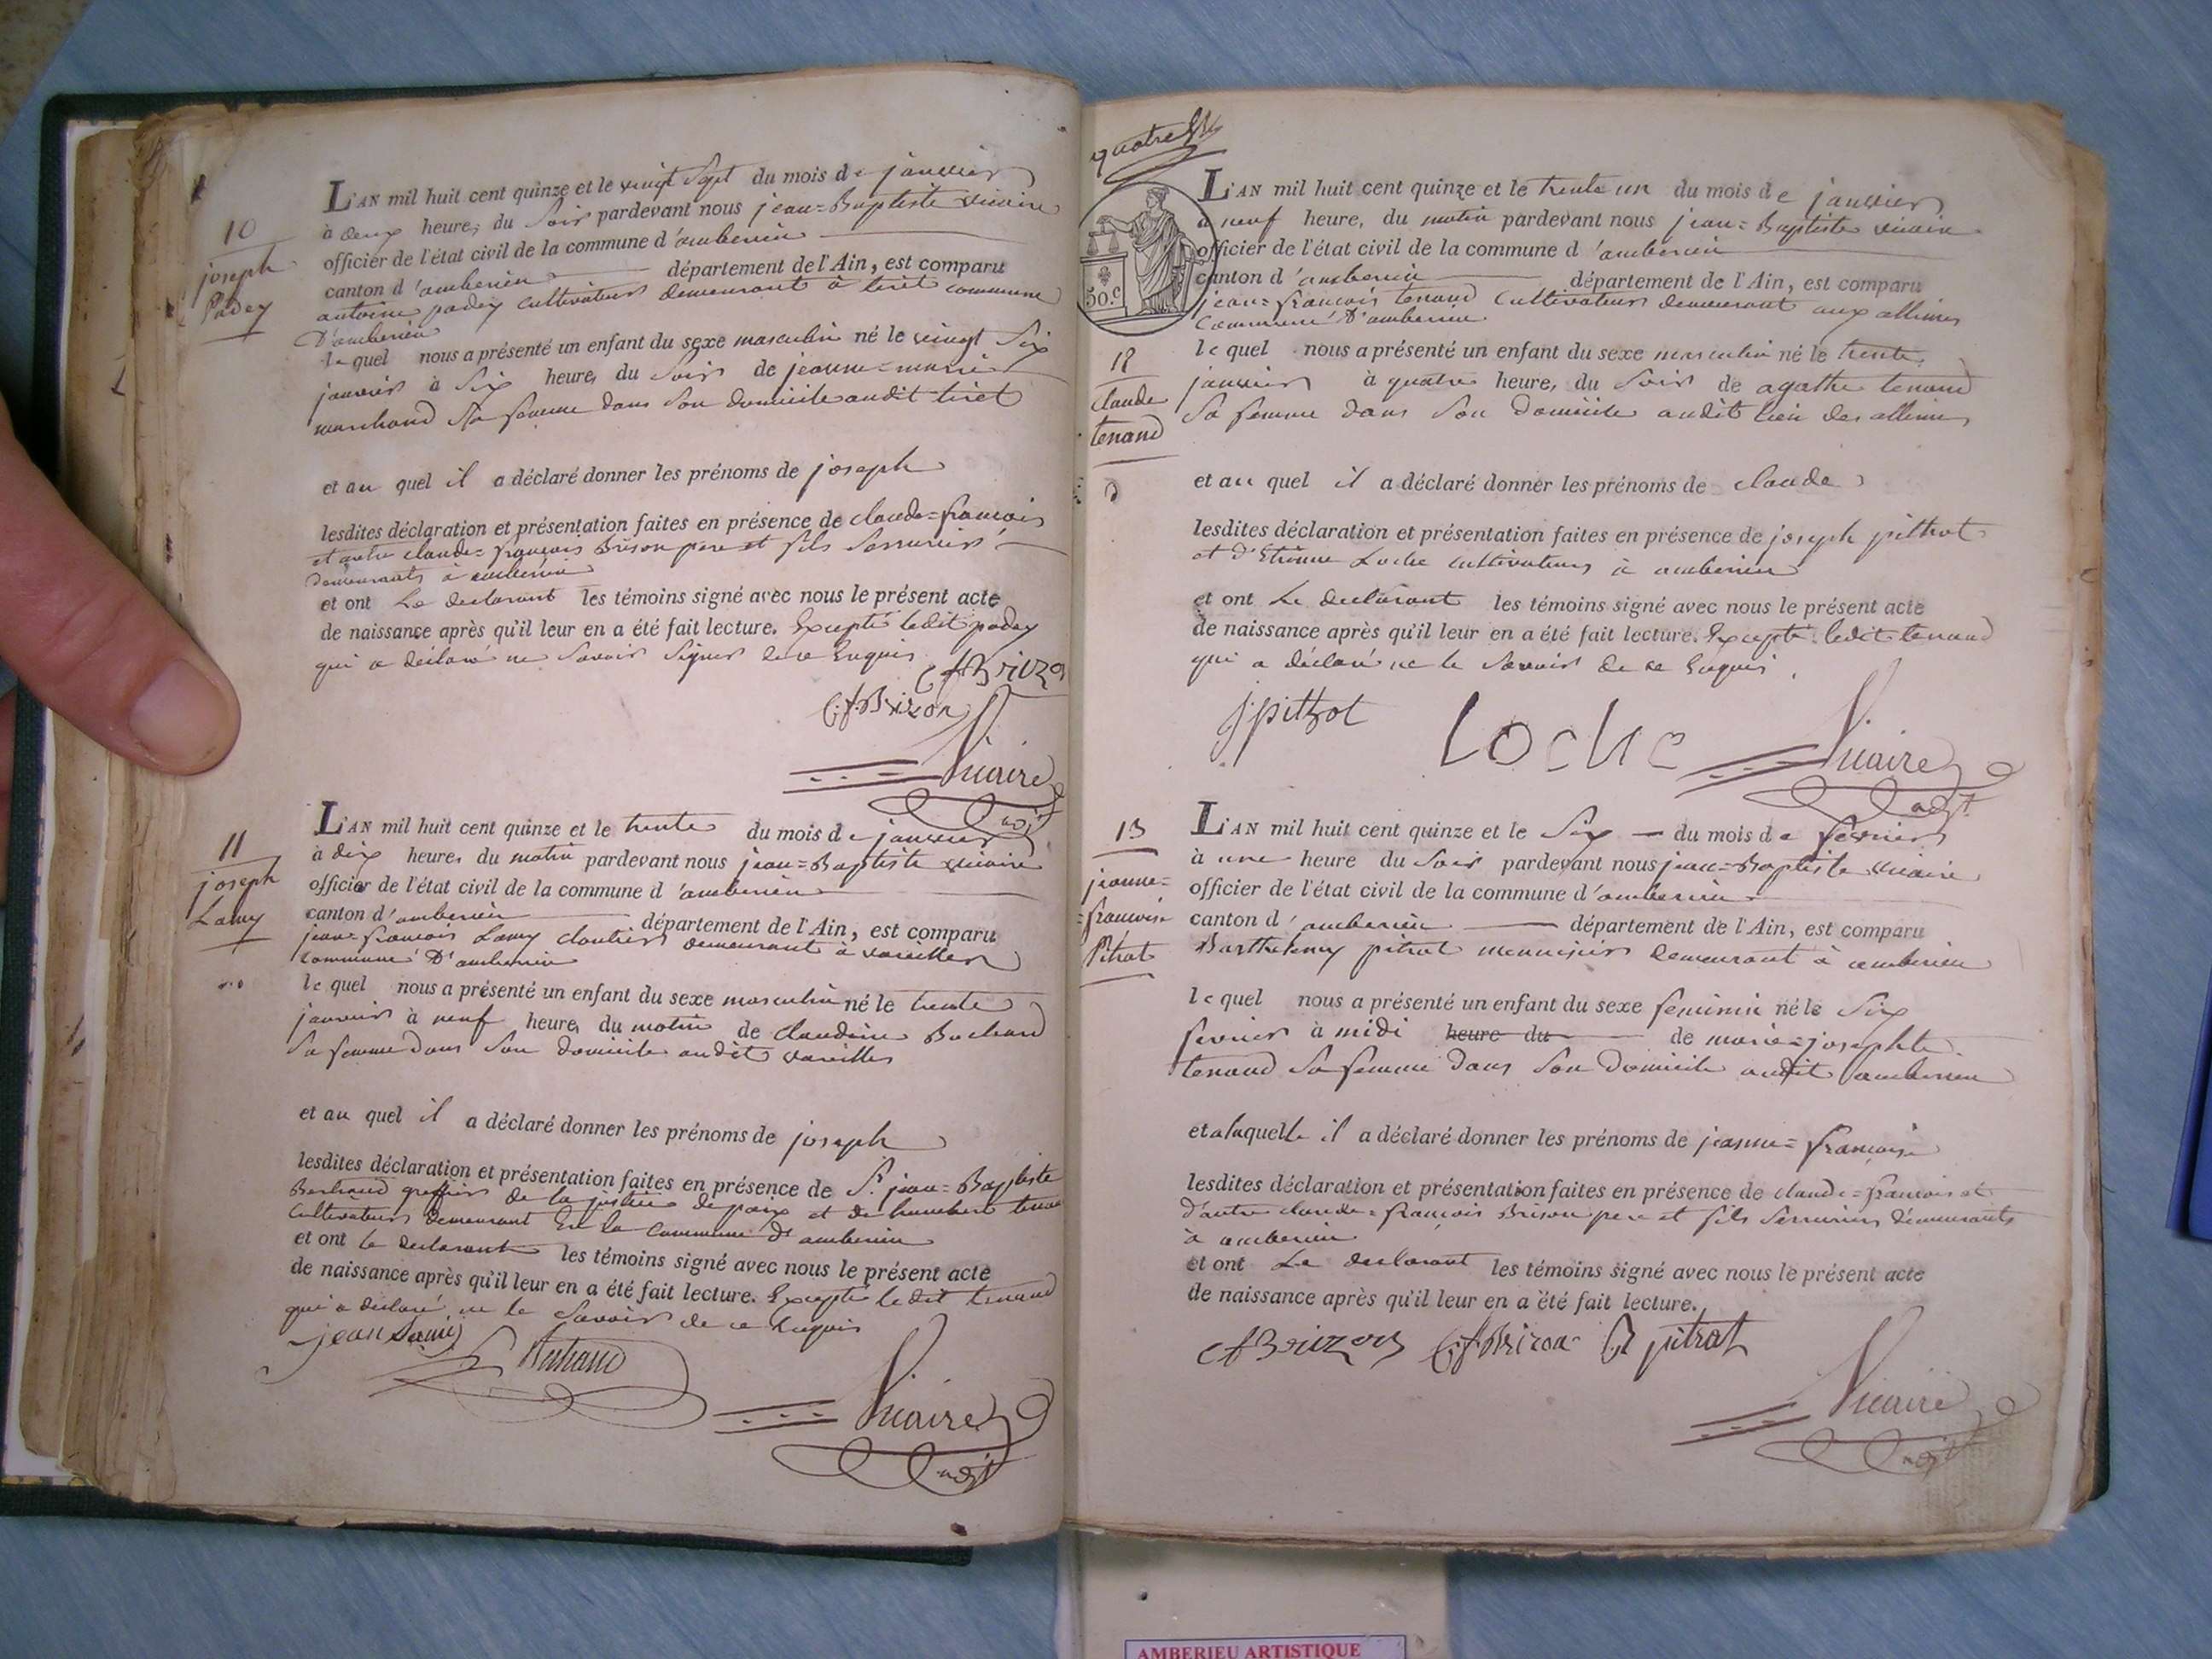 10
joseph
Padey
L'AN mil huit cent quinze et le vingt Sept du mois de janvier
à deux heure, du Soir pardevant nous jean=Baptiste vicaire
officier de l'état civil de la commune d'amberieu
canton d'amberieu département de l'Ain, est comparu
antoine padey cultivateur demeurant à tiret commune
D'amberieu
lequel nous a présenté un enfant du sexe masculin né le vingt Six
janvier à Six heure, du Soir de jeanne=marie
marchand Sa femme dans Son domicile audit tiret
et au quel il a déclaré donner les prénoms de joseph
lesdites déclaration et présentation faites en présence de claude=françois
et autre claude=françois Brison pere et fils Serruriers
demeurants à amberieu
et ont Le declarant les témoins signé avec nous le présent acte
de naissance après qu'il leur en a été fait lecture. Excepté ledit padey
qui a déclaré ne Savoir Signer de ce Enquis
cfBrizon
C.f.Brizon
Vicaire
adjt
11
joseph
Lamy
L'AN mil huit cent quinze et le trente du mois de janvier
à dix heure, du matin pardevant nous jean=Baptiste vicaire
officier de l'état civil de la commune d'amberieu
canton d'amberieu département de l'Ain, est comparu
jean=françois Lamy cloutier demeurant à vareilles
commune D'amberieu
lequel nous a présenté un enfant du sexe masculin né le trente
janvier à neuf heure, du matin de claudine Bochard
Sa femme dans Son domicile audit vareilles
et au quel il a déclaré donner les prénoms de joseph
lesdites déclaration et présentation faites en présence de Sr. jean=Baptiste
Bertrand greffier de la justice de paix et de humbert tenand
cultivateur demeurant En la commune d'amberieu
et ont le declarant les témoins signé avec nous le présent acte
de naissance après qu'il leur en a été fait lecture. Excepté ledit tenand
qui a déclaré ne le Savoir de ce Enquis
jean Lamy
Bertrand
Vicaire
adjt
quatre
50.c
12
claude
tenand
L'AN mil huit cent quinze et le trente un du mois de janvier
à neuf heure, du matin pardevant nous jean=Baptiste vicaire
officier de l'état civil de la commune d'amberieu
canton d'amberieu département de l'Ain, est comparu
jean=françois tenand Cultivateur demeurant aux allimes
commune D'amberieu
lequel nous a présenté un enfant du sexe masculin né le trente
janvier à quatre heure, du Soir de agathe tenand
Sa femme dans Son Domicile audit lieu des allimes
et au quel il a déclaré donner les prénoms de claude
lesdites déclaration et présentation faites en présence de joseph pittrot
et d'Etienne Loche cultivateurs à amberieu
et ont Le declarant les témoins signé avec nous le présent acte
de naissance après qu'il leur en a été fait lecture. Excepté ledit tenand
qui a déclaré ne le Savoir de ce Enquis.
jpitrot Loche Vicaire
adjt
13
jeanne=
=françoise
Pitrat
L'AN mil huit cent quinze et le Six du mois de fevrier
à une heure du Soir pardevant nous jean=Baptiste vicaire
officier de l'état civil de la commune d'amberieu
canton d'amberieu département de l'Ain, est comparu
Barthelemy pitrat menuisier demeurant à amberieu
lequel nous a présenté un enfant du sexe feminin né le Six
fevrier à midi heure du de marie=josephte
tenand Sa femme dans Son Domicile audit amberieu
et a laquelle il a déclaré donner les prénoms de jeanne=françoise
lesdites déclaration et présentation faites en présence de claude=françois et
d'autre claude=françois Brison pere et fils Serruriers demeurants
a amberieu
et ont Le declarant les témoins signé avec nous le présent acte
de naissance après qu'il leur en a été fait lecture.
cfBrizon C.f.Brizon B pitrat
Vicaire
adjt
AMBERIEU ARTISTIQUE